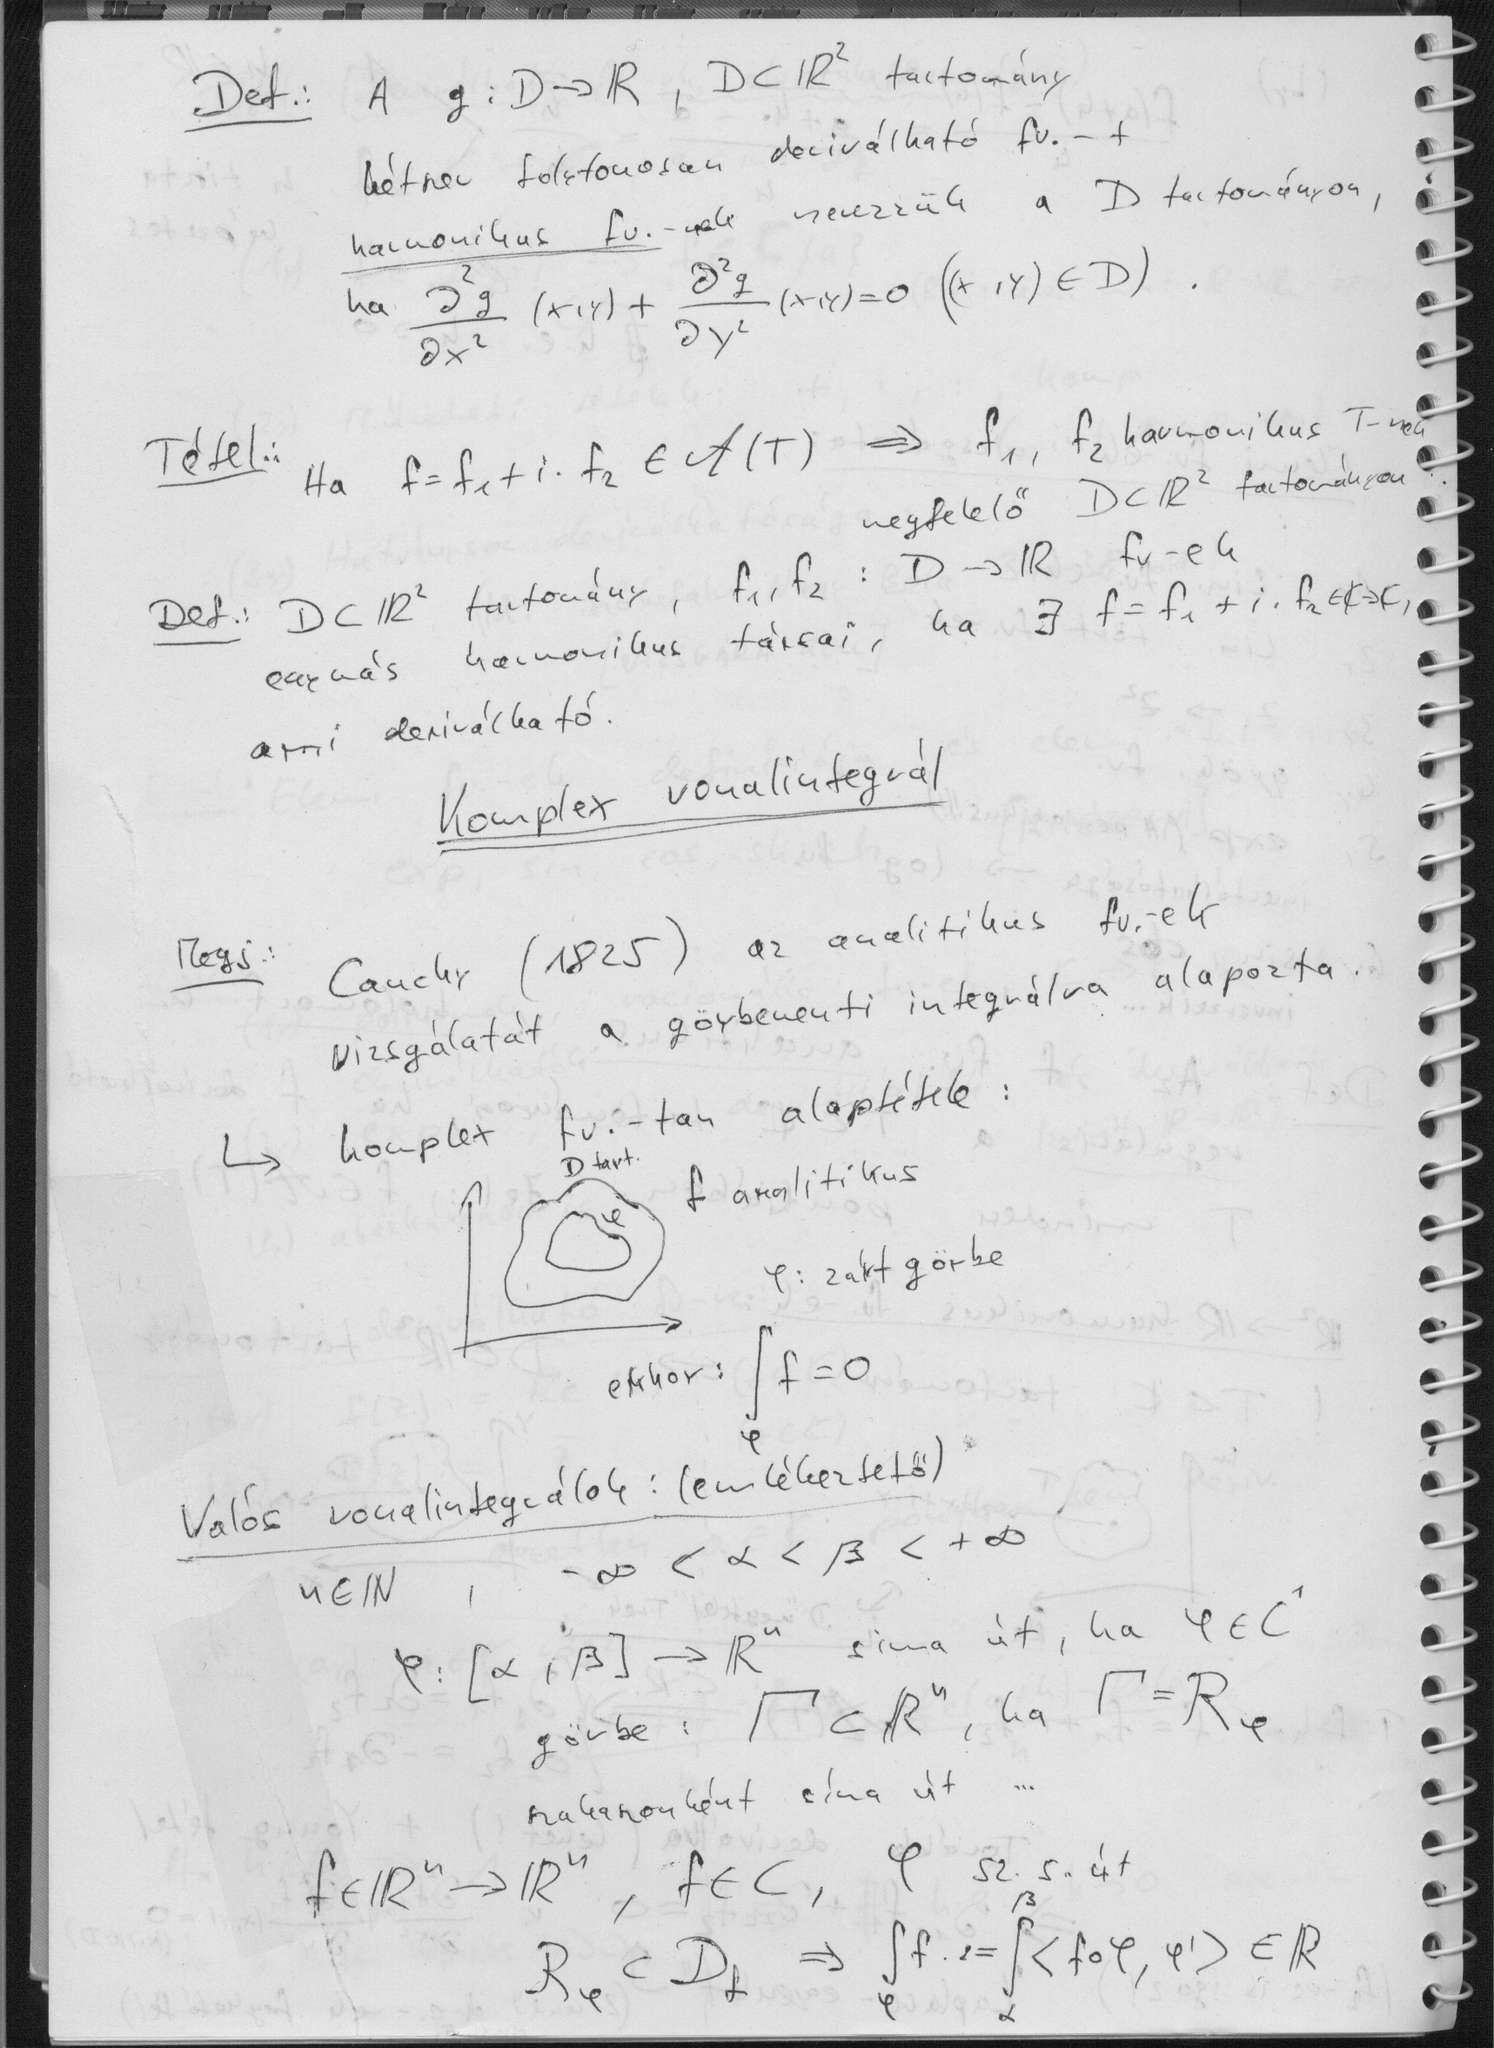 Def.: A g: D→ℝ, D⊂ℝ² tartomány
kétszer folytonosan deriválható fv.-t
harmonikus fv.-nek nevezzük a D tartományon,
ha ∂²g/∂x² (x,y) + ∂²g/∂y² (x,y)=0 ((x,y)∈D).
Tétel.: Ha f=f₁+i·f₂ ∈ 𝒜(T) ⇒ f₁, f₂ harmonikus T-nek
megfelelő D⊂ℝ² tartományon.
Def.: D⊂ℝ² tartomány, f₁, f₂ : D→ℝ fv-ek
egymás harmonikus társai, ha ∃ f=f₁+i·f₂∈ℂ→ℂ,
ami deriválható.
Komplex vonalintegrál
Megj.: Cauchy (1825) az analitikus fv.-ek
vizsgálatát a görbementi integrálra alapozta.
↳ komplex fv.-tan alaptétele:
D tart.
φ
f analitikus
φ: zárt görbe
ekkor: ∫_φ f=0
Valós vonalintegrálok: (emlékeztető)
n∈ℕ, -∞ < α < β < +∞
φ: [α, β] → ℝⁿ sima út, ha φ∈C¹
görbe: Γ⊂ℝⁿ, ha Γ=R_φ
szakaszonként sima út ...
f∈ℝⁿ→ℝⁿ, f∈C, φ sz. s. út
R_φ ⊂ D_f ⇒ ∫_φ f := ∫_α^β <f∘φ, φ'> ∈ℝ